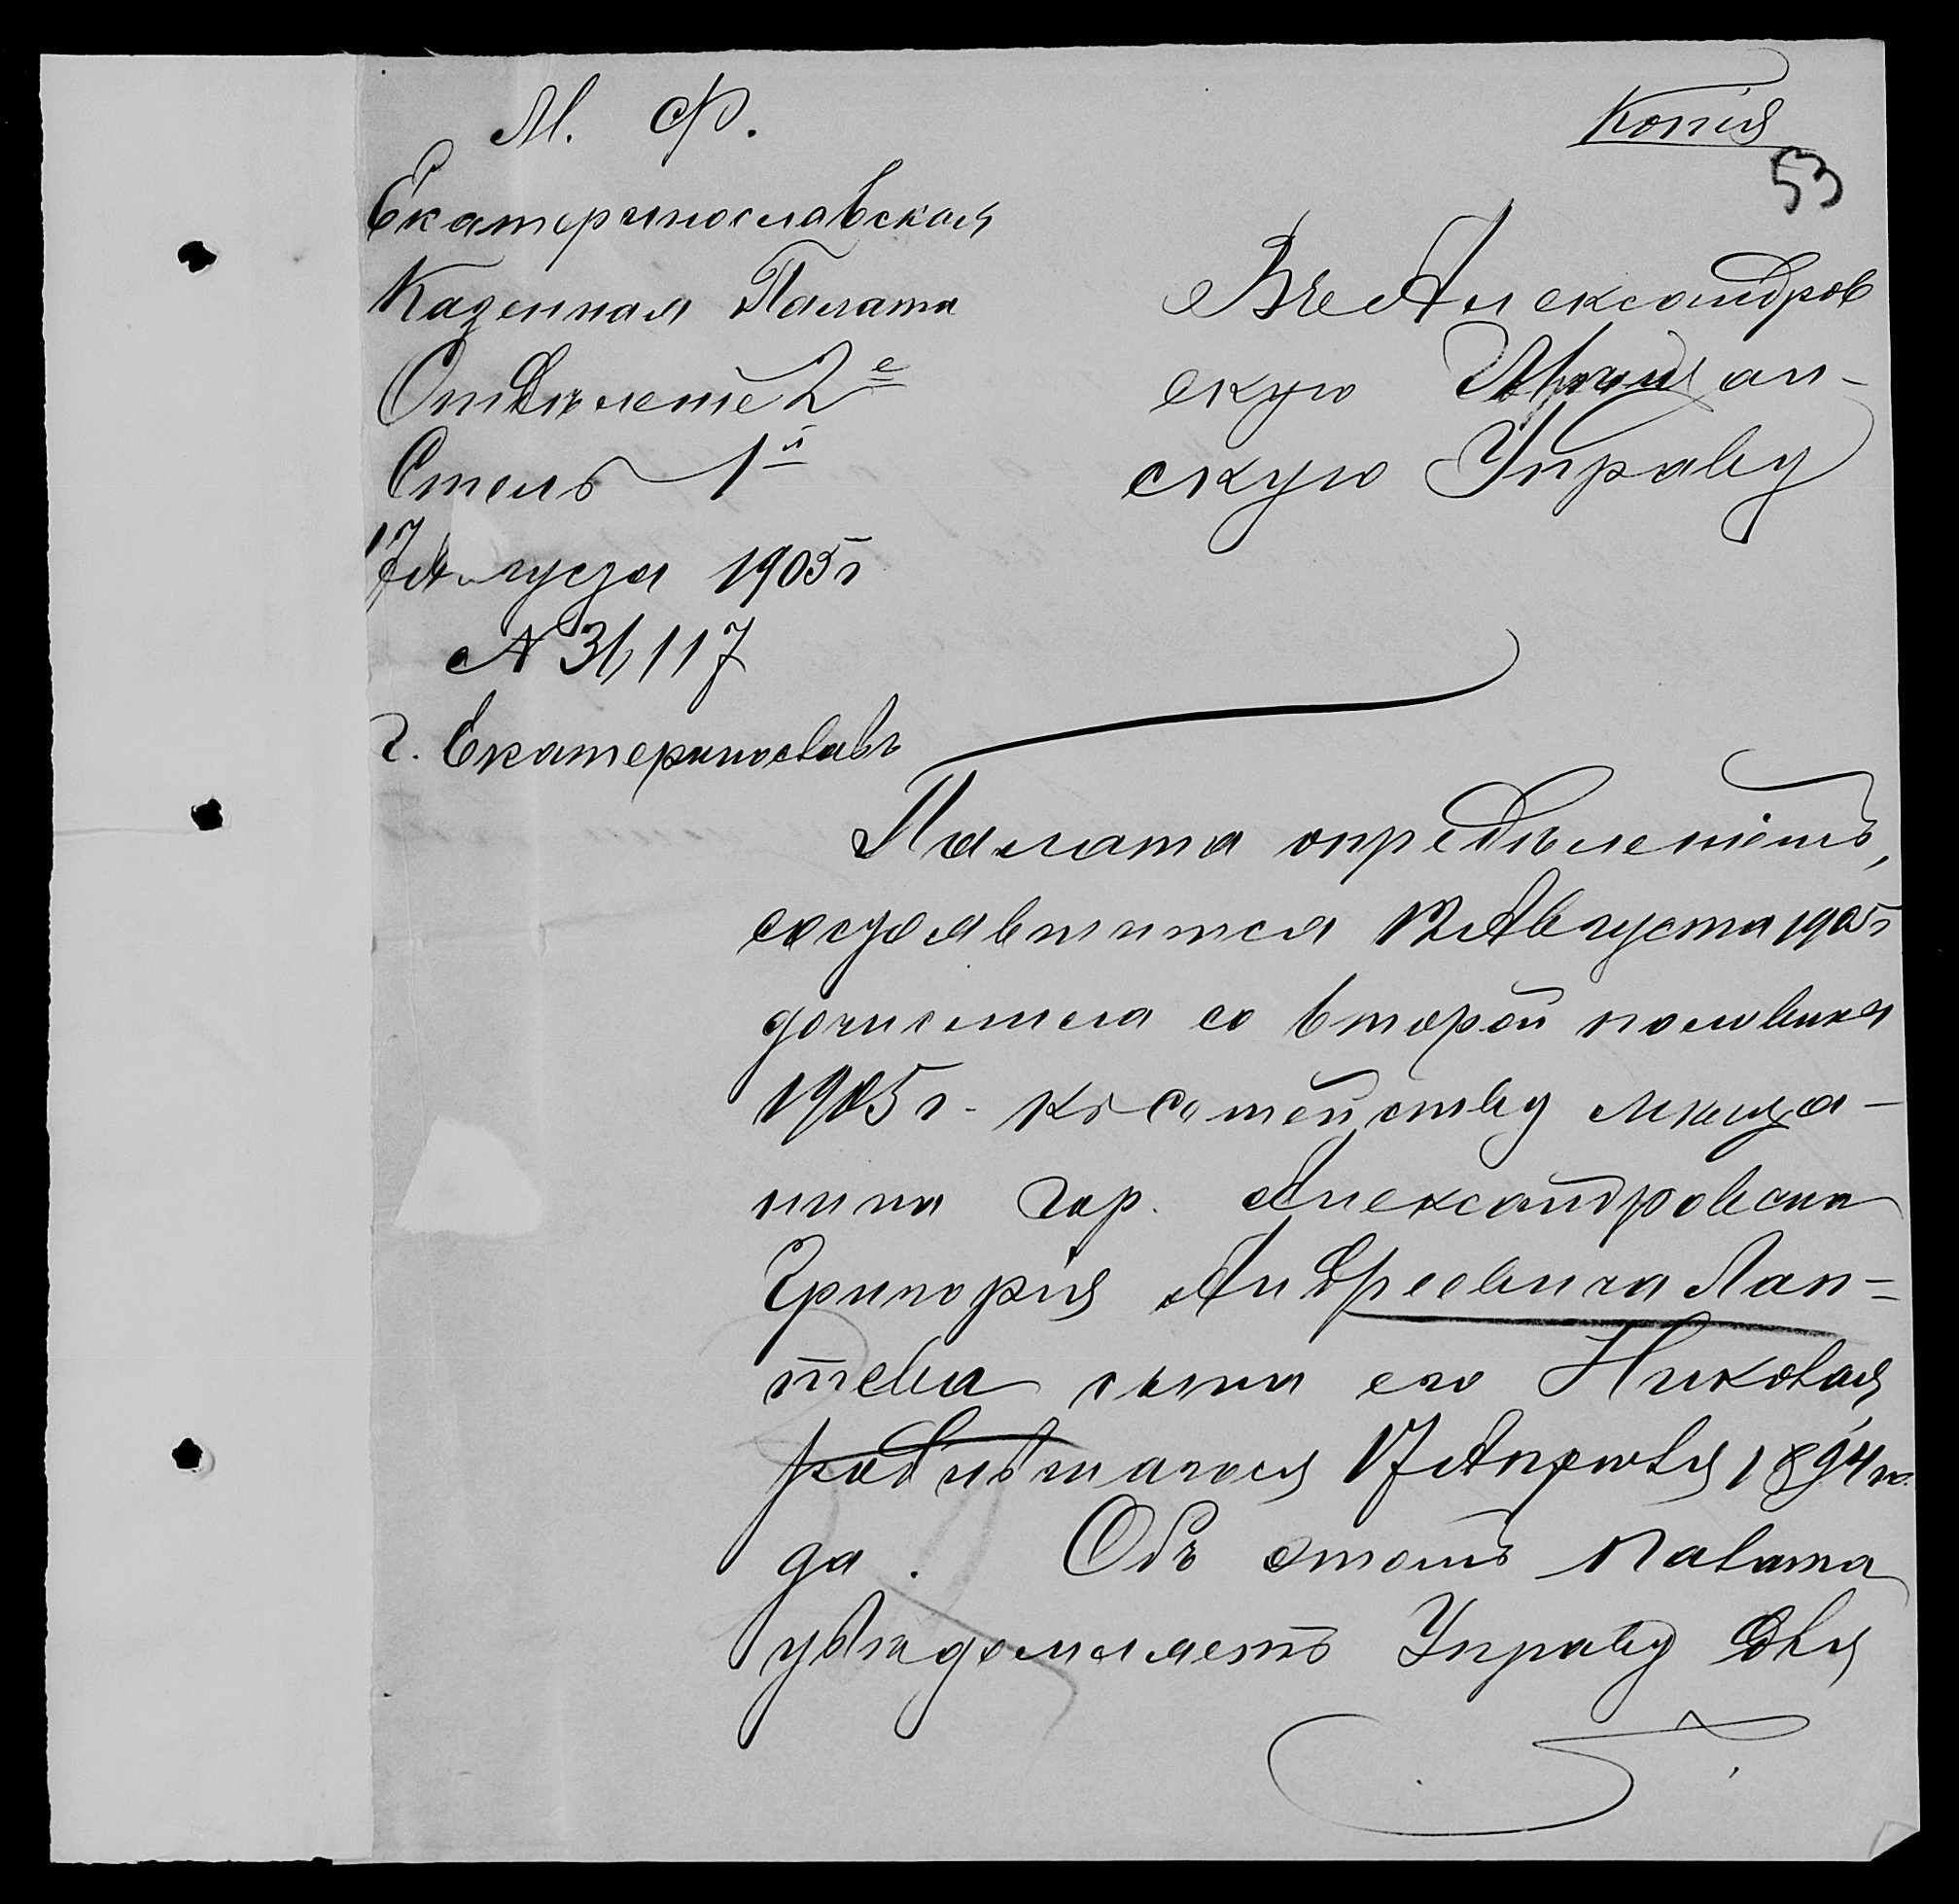 М. Ф.
Копія
53
Екатеринославская
Казенная Палата
Отдѣленіе 2е
Столъ 1й
17 Августа 1905 г
№ 31,117
г. Екатеринославъ
Въ Александров
скую Мѣщан-
скую Управу
Палата опредѣленіемъ,
состоявшимся 12 Августа 1905 г
дочислила со второй половины
1905 г. къ семейству мѣща-
нина гор. Александровска
Григорія Андреевича Лап-
тева сына его Николая,
родившагося 17 Апрѣля 1894 го-
да. Объ этомъ Палата
увѣдомляетъ Управу для